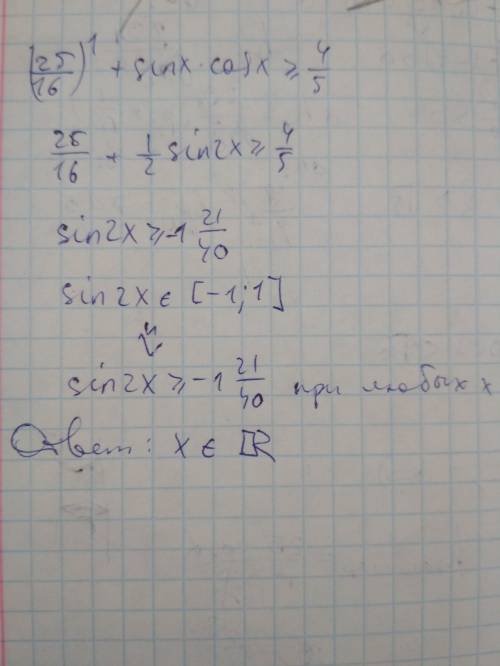 (25/16)^1 + sinx·cosx ≥ 4/5
25/16 + 1/2 sin2x ≥ 4/5
sin2x ≥ -1 21/40
sin2x ∈ [-1;1]
⇓
sin2x ≥ -1 21/40 при любых x
Ответ: x ∈ ℝ